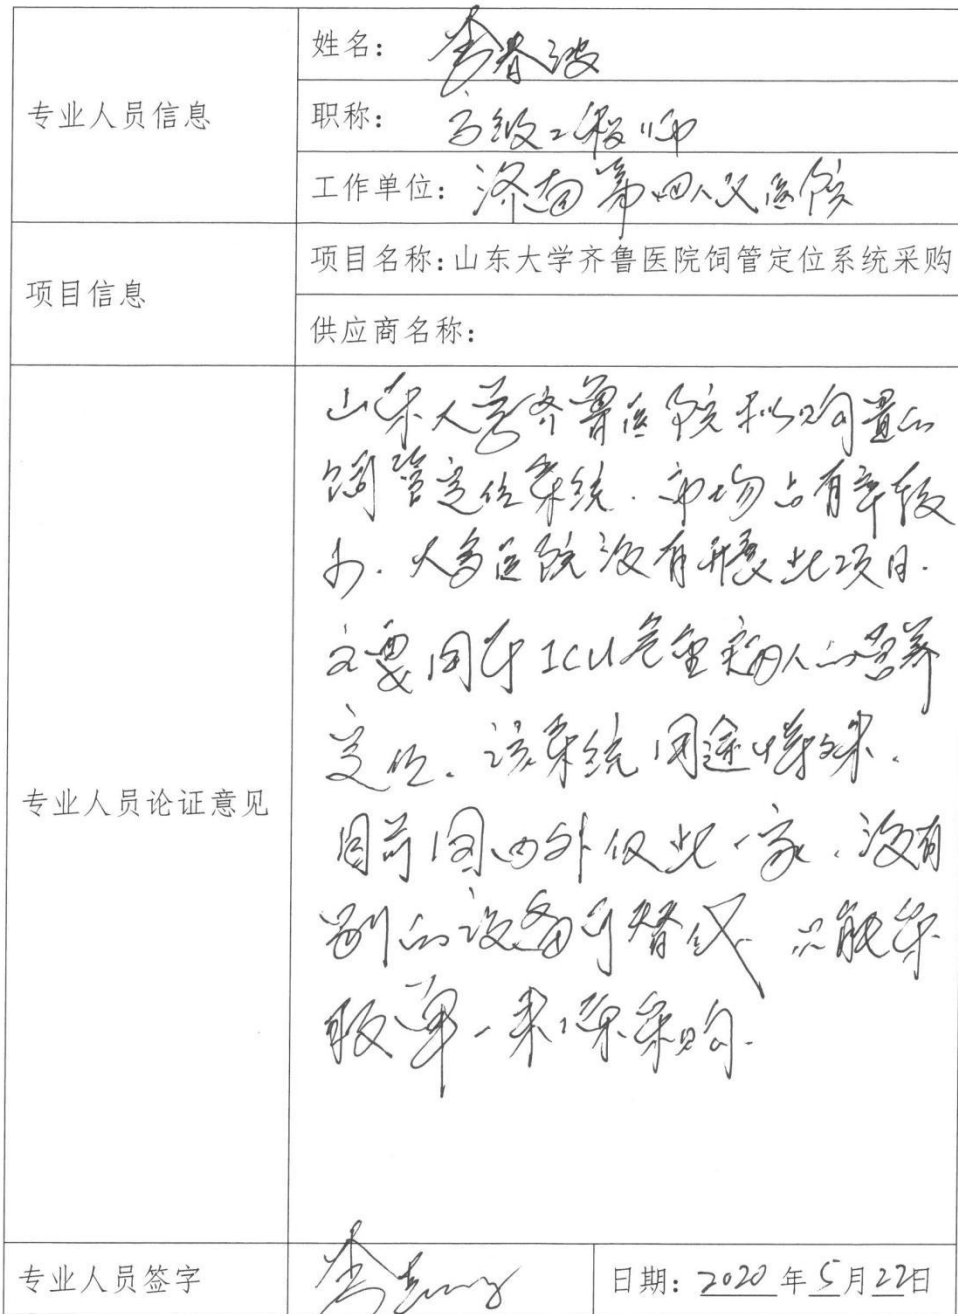 专业人员信息
姓名: 李春波
职称: 高级工程师
工作单位: 济南第四人民医院
项目信息
项目名称:山东大学齐鲁医院饲管定位系统采购
供应商名称:
专业人员论证意见
山东大学齐鲁医院拟购置的
饲管定位系统.市场占有率较
少.大多医院没有开展此项目.
主要用于ICU危重病人的营养
定位.该系统用途特殊.
目前国内外仅此一家.没有
别的设备可替代.只能采
取单一来源采购.
专业人员签字
日期: 2020 年 5 月 22 日